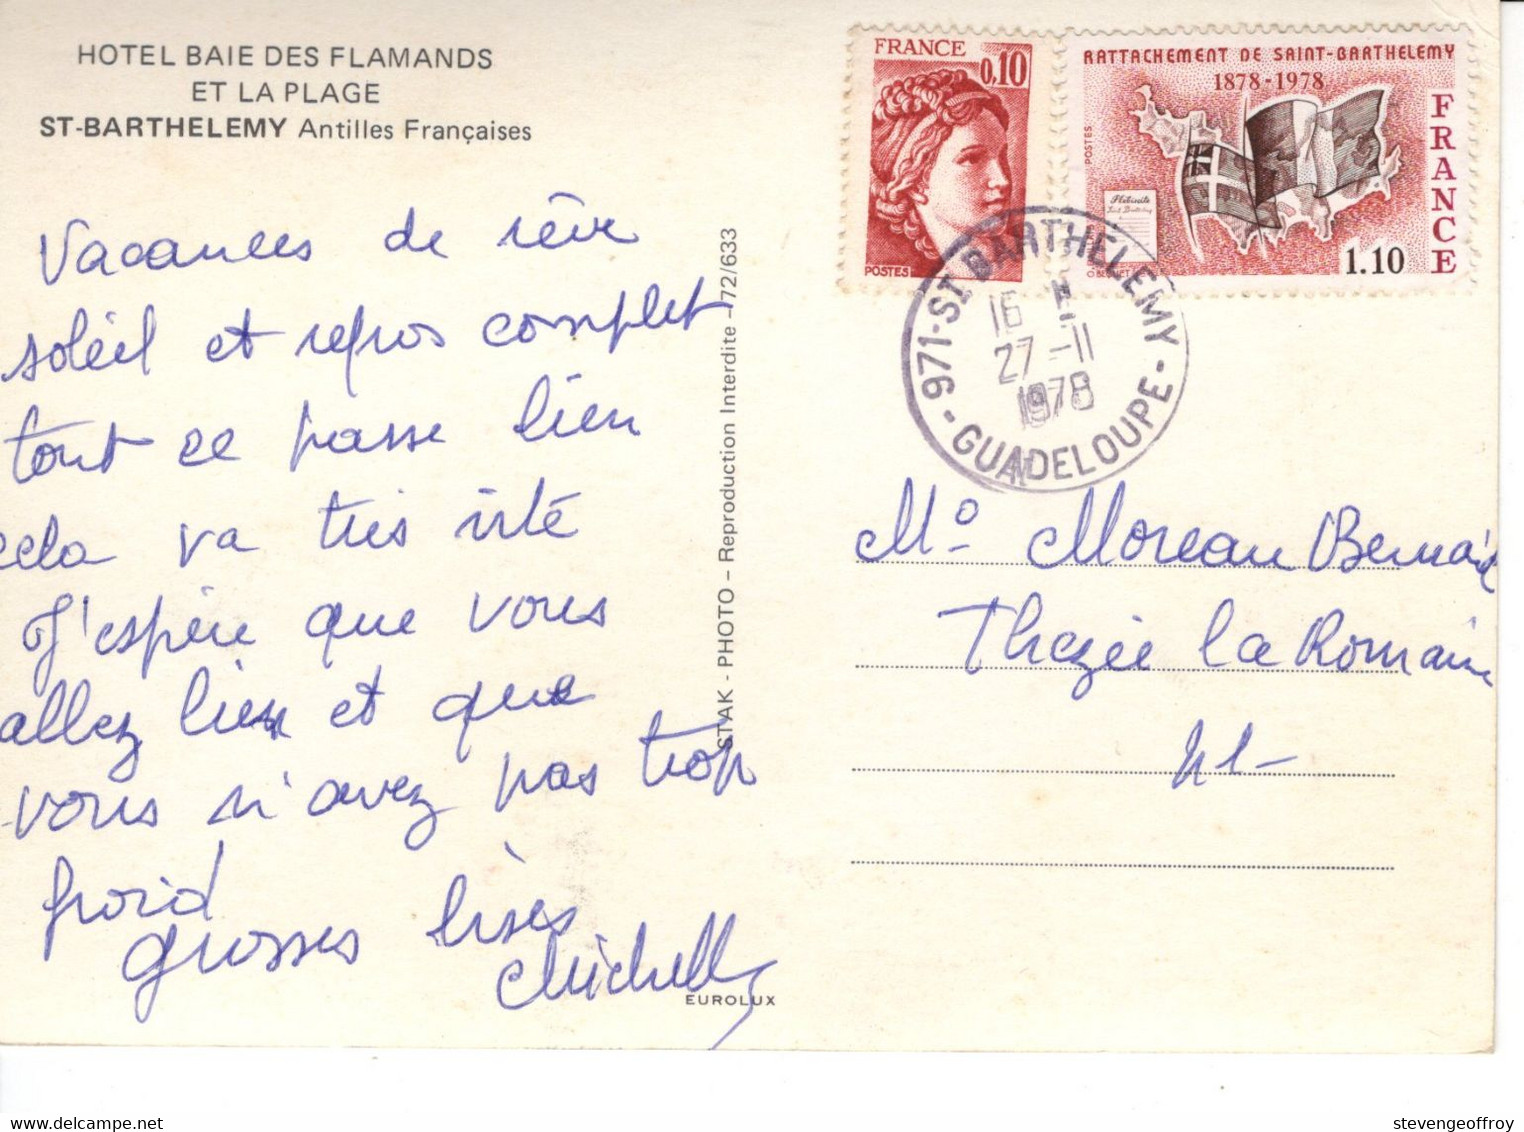 HOTEL BAIE DES FLAMANDS
ET LA PLAGE
ST-BARTHELEMY Antilles Françaises
Vacances de rêve
soleil et repos complet
tout ce passe bien
cela va très vite
J'espère que vous
allez bien et que
vous n'avez pas trop
froid
grosses bises
Michelle
EUROLUX
STAK - PHOTO - Reproduction Interdite - 72/633
FRANCE
0,10
POSTES
RATTACHEMENT DE SAINT-BARTHELEMY
1878-1978
FRANCE
POSTES
1.10
971-ST BARTHELEMY
16 H
27-11
1978
-GUADELOUPE-
Moreau Bernard
Thézée la Romaine
41-
stevengeoffroy